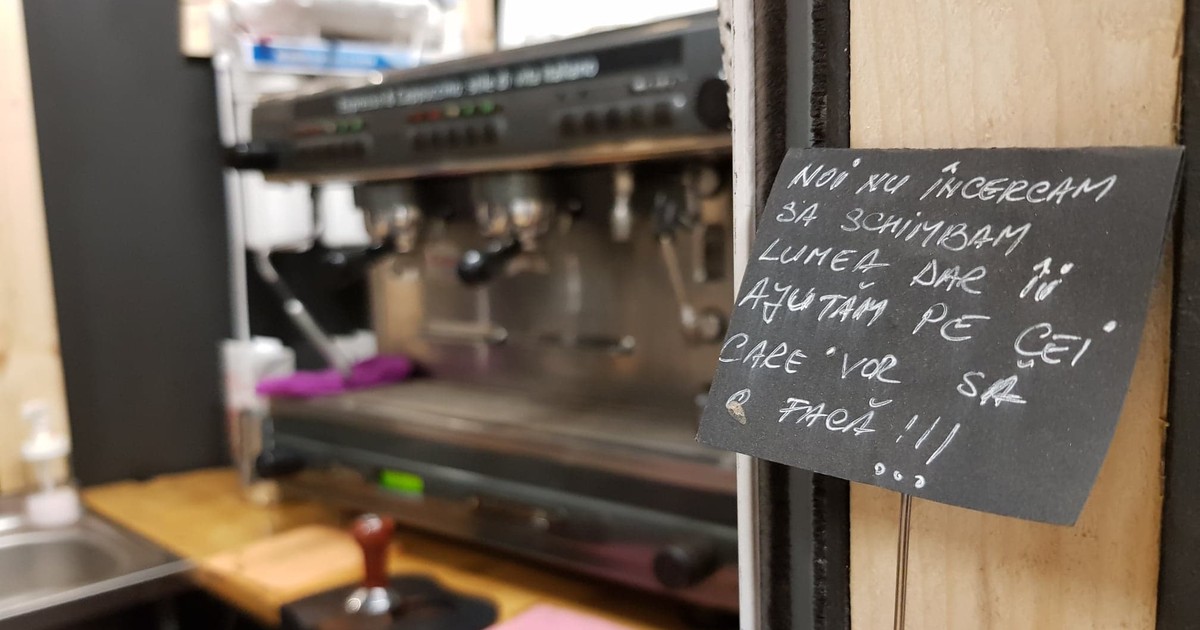 NOI NU ÎNCERCAM
SA SCHIMBAM
LUMEA DAR îi
AJUTĂM PE CEI
CARE VOR SĂ
O FACĂ !!!
...